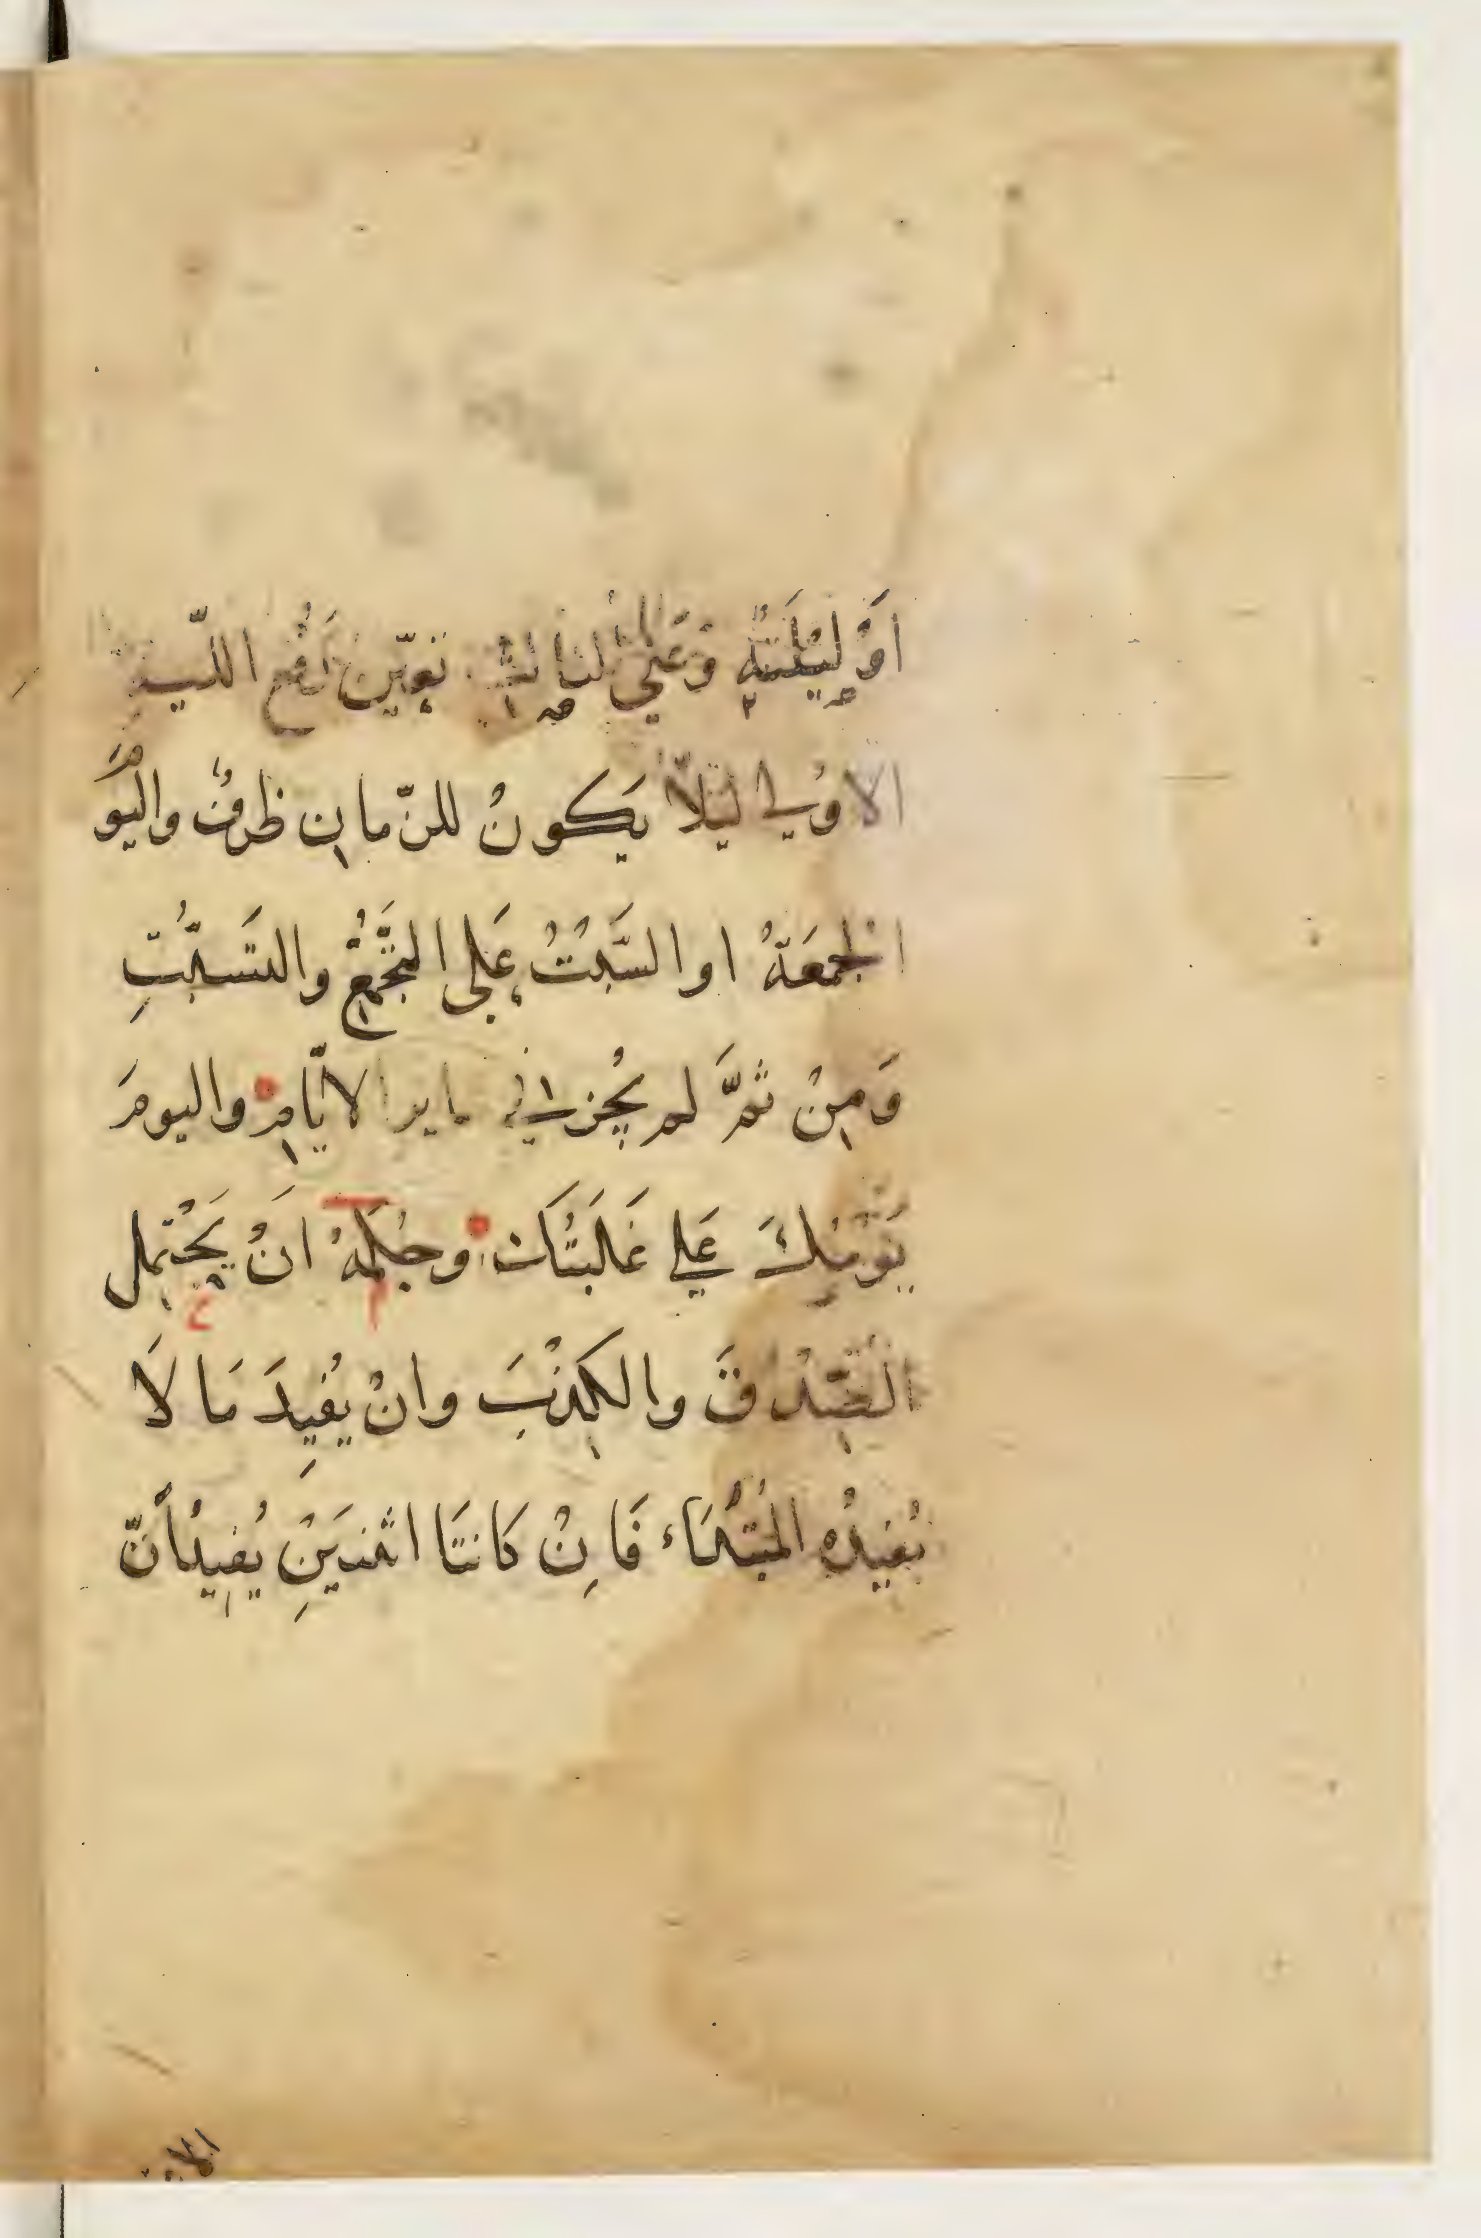 اَوْ لَيْلَتُهُ وَعَلَى الثَّالِثِ تَعَيَّنَ رَفْعُ اللَّيْلَةِ
الاُولى لِيَلّا يَكُونُ للزّمانِ ظَرفٌ واليَوْمَ
الجُمعَةُ او السَّبْتُ عَلى التَّجَمُّعِ والتَسَبُّتِ
وَمِنْ ثَمَّ لم يُجز في ساير الايّامِ واليومَ
يَوْمُكَ عَلي غَلَبَتُكَ وحُكمُهُ اَنْ يَحْتَمِل
الصِّدْقَ والكِذْبَ وانْ يُفيِدَ مَا لَا
يُفيدُهُ المُبْتَدَاء فَاِنْ كَانَتَا اثْنَيَنِ يُفيدُ اَنّ
الا